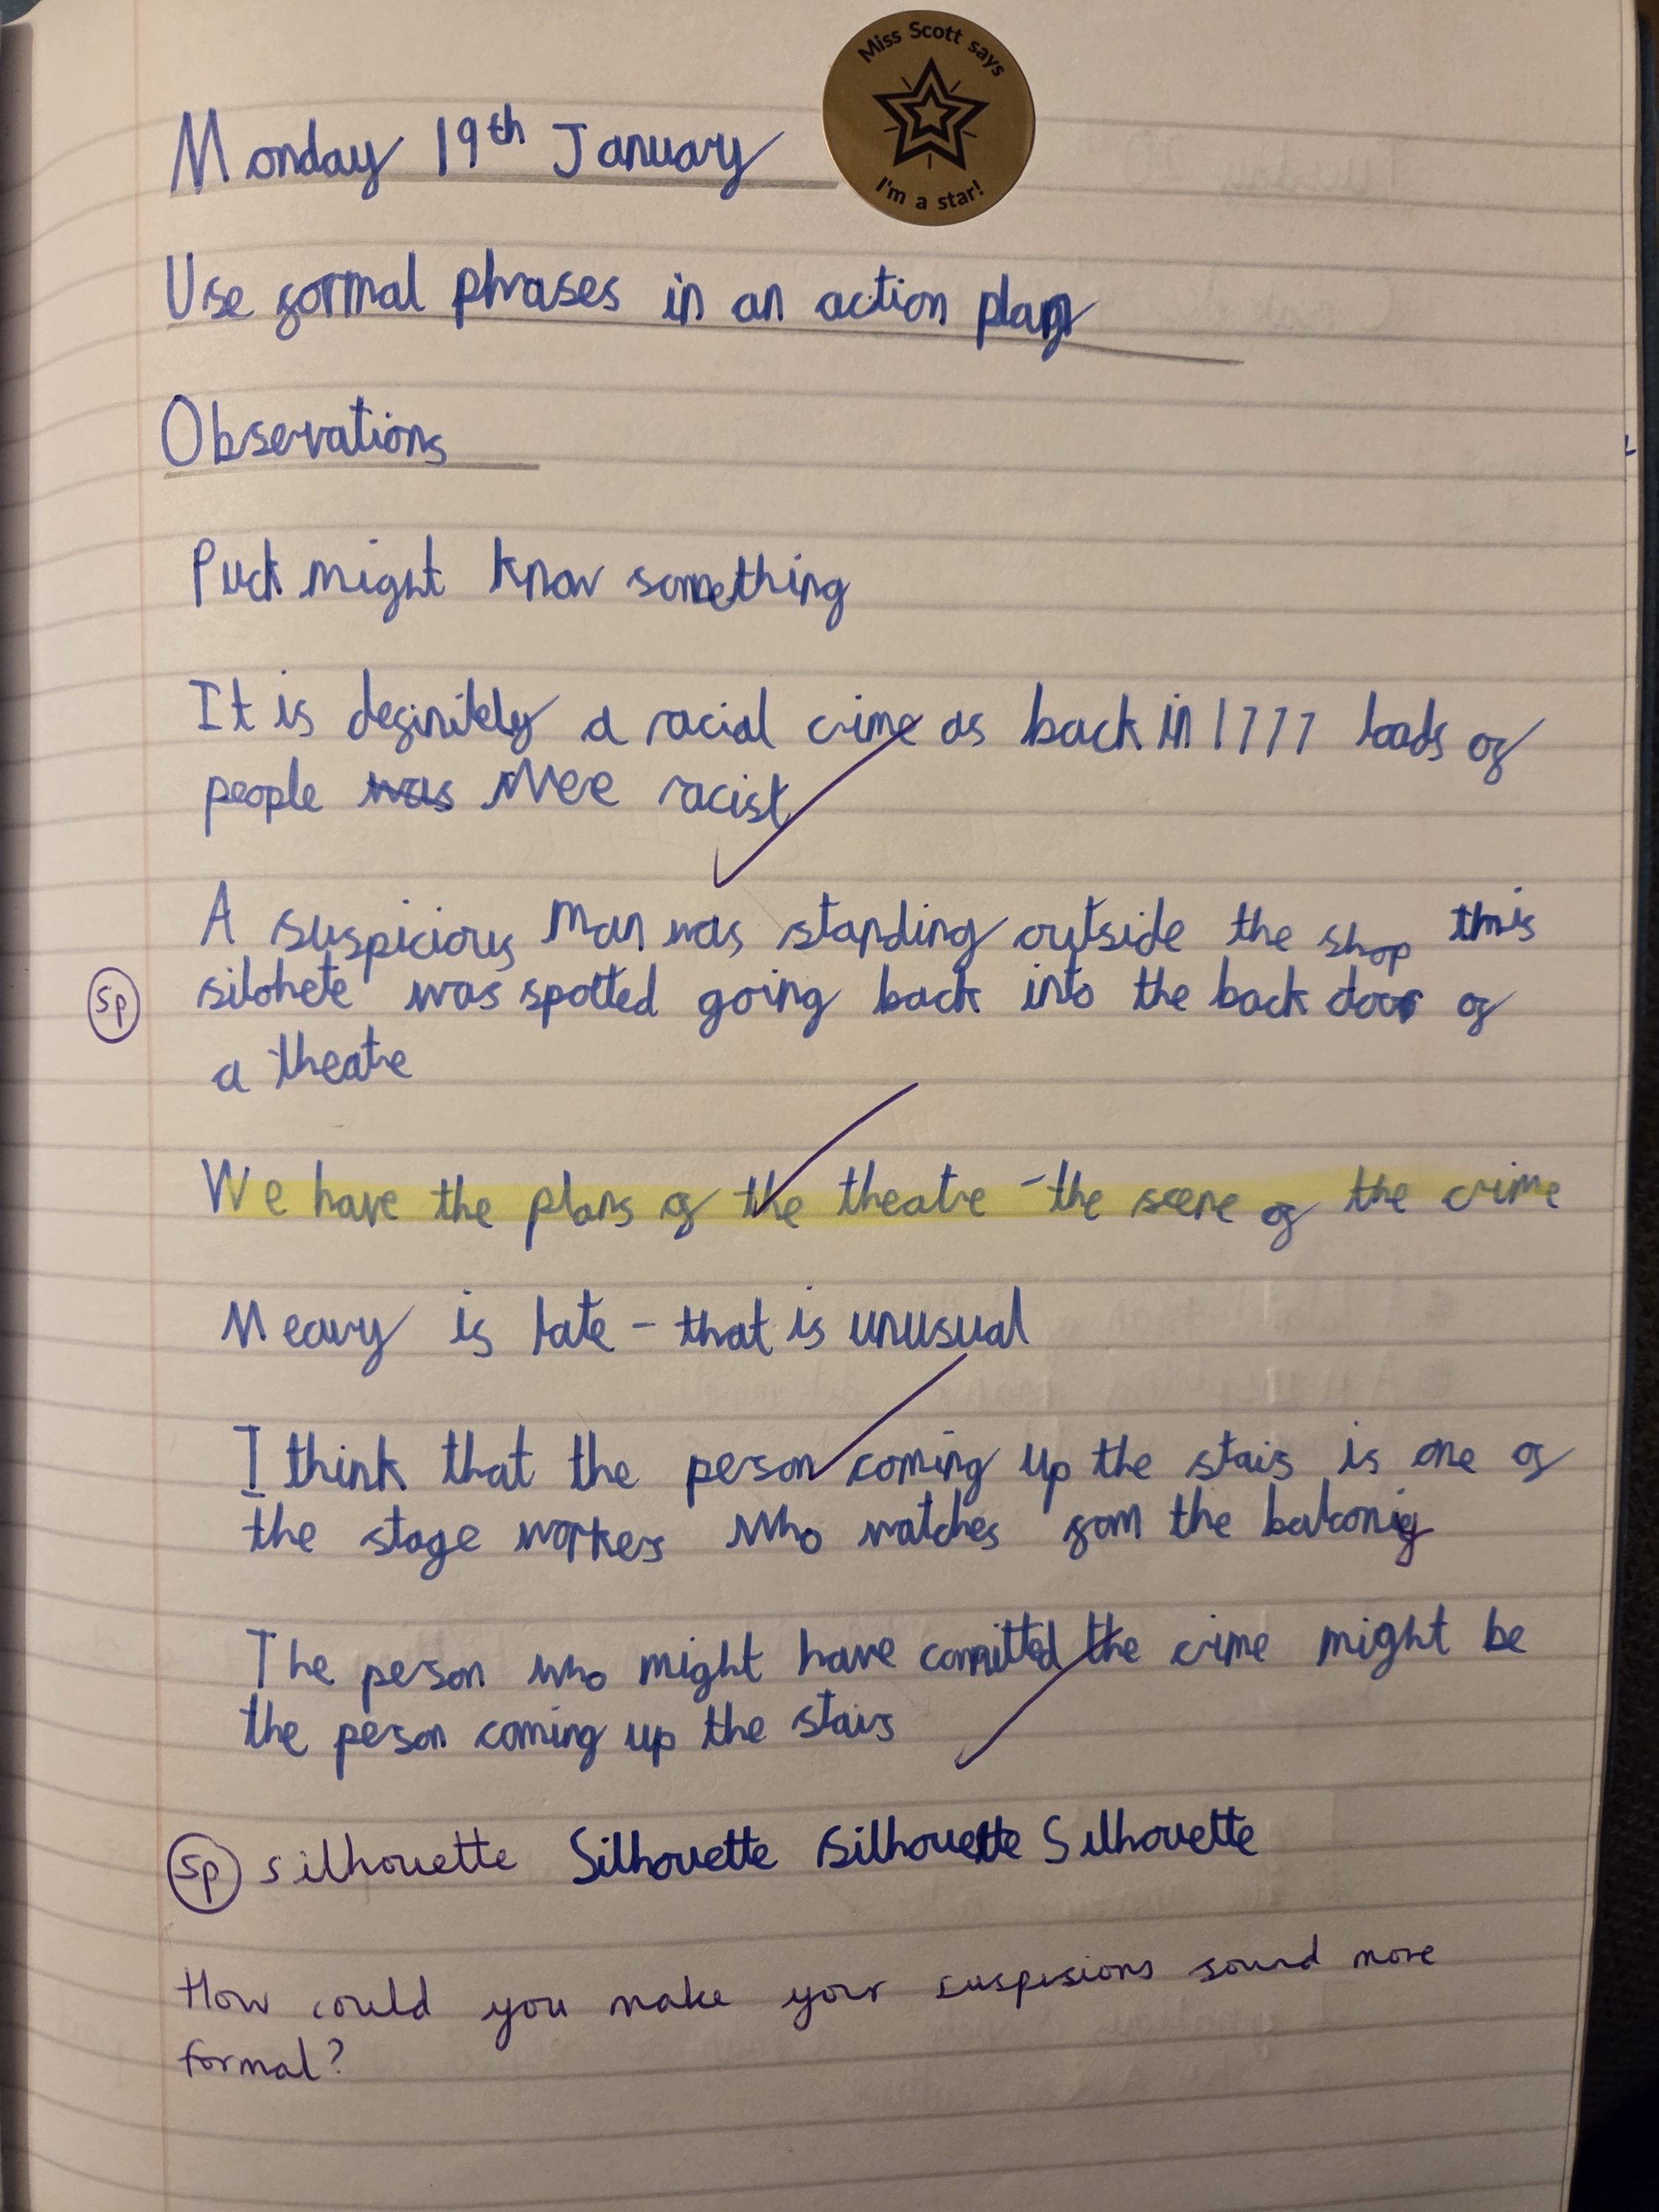 Miss Scott says
I'm a star!
Monday 19th January
Use formal phrases in an action plan
Observations
Puck might know something
It is definitely a racial crime as back in 1777 loads of
people was were racist
A suspicious man was standing outside the shop this
sp
silohete was spotted going back into the back door of
a theatre
We have the plans of the theatre - the scene of the crime
Meavy is late - that is unusual
I think that the person coming up the stairs is one of
the stage workers who watches from the balcony
The person who might have committed the crime might be
the person coming up the stairs
sp silhouette Silhouette Silhouette Silhouette
How could you make your suspisions sound more
formal?